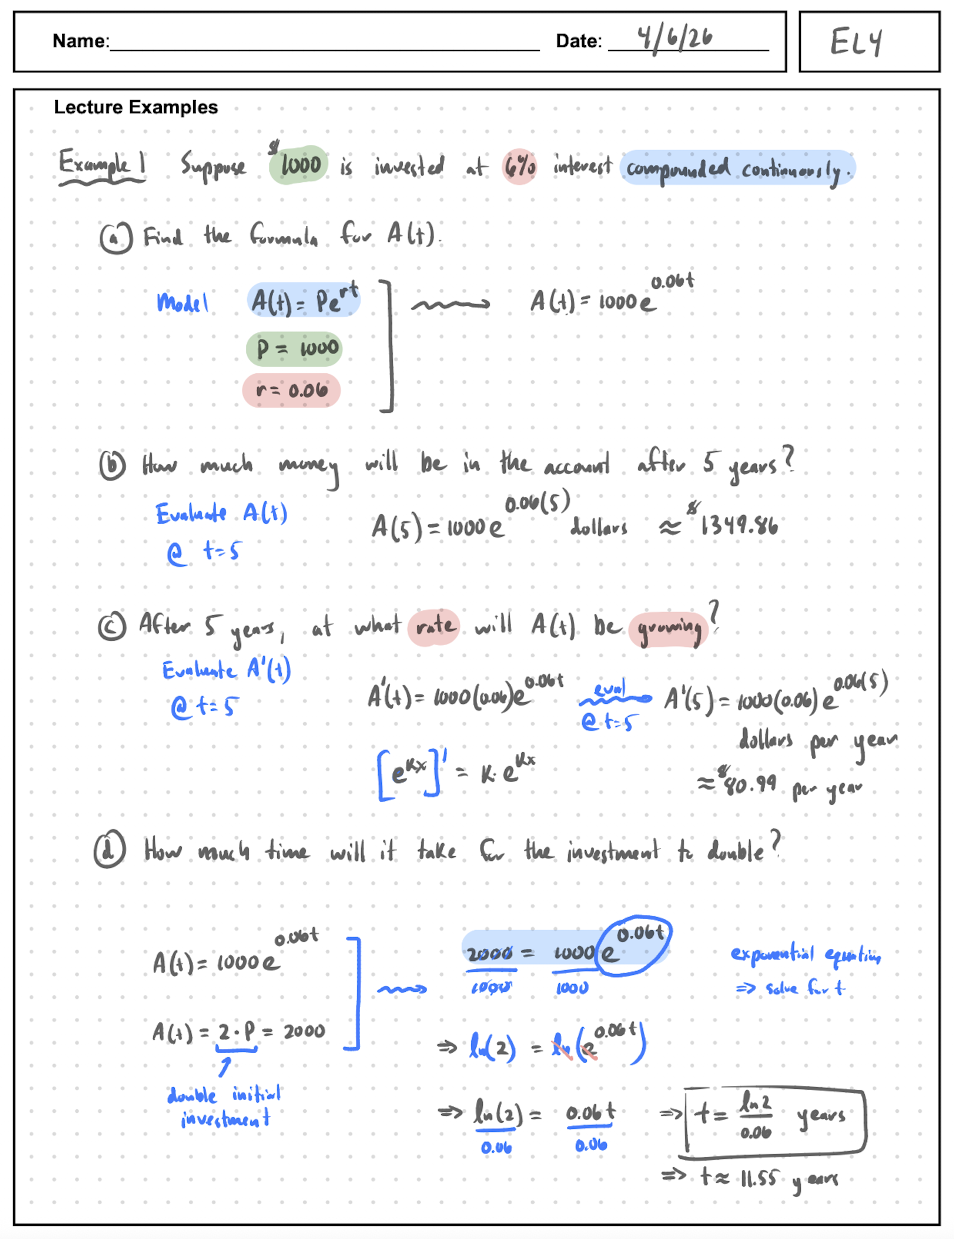 Name: Date: 4/6/26 EL4
Lecture Examples
Example 1 Suppose $1000 is invested at 6% interest compounded continuously.
(a) Find the formula for A(t).
Model A(t) = Pe^{rt} → A(t) = 1000e^{0.06t}
P = 1000
r = 0.06
(b) How much money will be in the account after 5 years?
Evaluate A(t) @ t=5
A(5) = 1000e^{0.06(5)} dollars ≈ $1349.86
(c) After 5 years, at what rate will A(t) be growing?
Evaluate A'(t) @ t=5
A'(t) = 1000(0.06)e^{0.06t} eval @ t=5 A'(5) = 1000(0.06)e^{0.06(5)}
dollars per year
[e^{kx}]' = k·e^{kx} ≈ $80.99 per year
(d) How much time will it take for the investment to double?
A(t) = 1000e^{0.06t} → 2000 = 1000e^{0.06t} exponential equation
1000 1000 ⇒ solve for t
A(t) = 2·P = 2000 ⇒ ln(2) = ln(e^{0.06t})
double initial investment
⇒ ln(2) = 0.06t ⇒ t = ln2/0.06 years
0.06 0.06
⇒ t ≈ 11.55 years